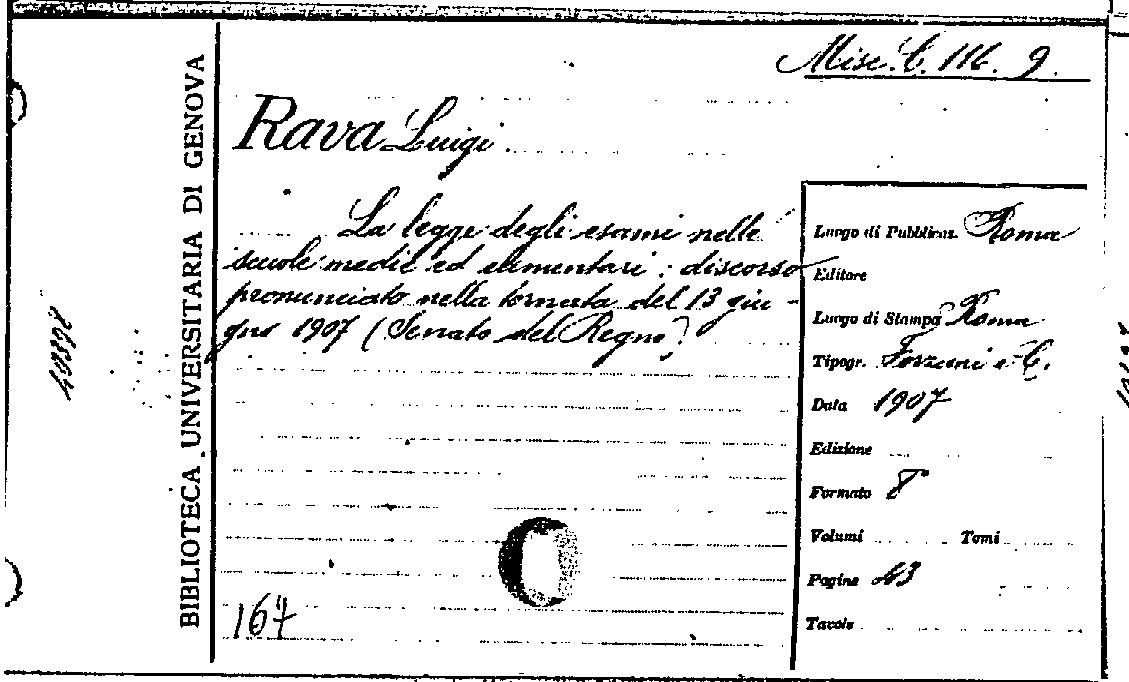 Misc. C. 116. 9.
Rava Luigi
La legge degli esami nelle
scuole medie ed elementari : discorso
pronunciato nella tornata del 13 giu-
gno 1907 (Senato del Regno)
Luogo di Pubblicaz. Roma
Editore
Luogo di Stampa Roma
Tipogr. Forzani e C.
Data 1907
Edizione
Formato 8°
Volumi Tomi
Pagine 43
Tavole
167
BIBLIOTECA UNIVERSITARIA DI GENOVA